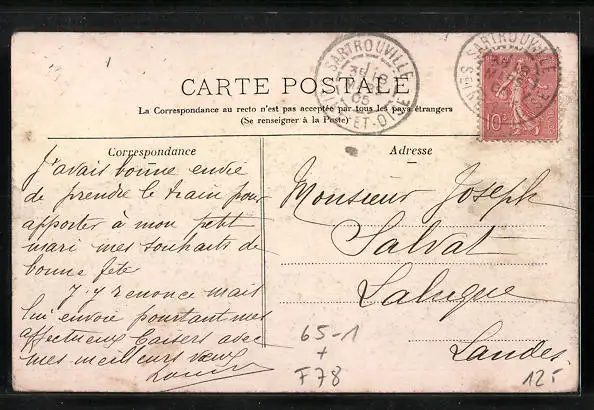 SARTROUVILLE
ET-OISE
SARTROUVILLE
10
CARTE POSTALE
La Correspondance au recto n'est pas acceptée par tous les pays étrangers
(Se renseigner à la Poste)
Correspondance
J'avais bonne envie
de prendre le train pour
apporter à mon petit
mari mes souhaits de
bonne fête
J'y renonce mais
lui envoie pourtant mes
affectueux baisers avec
mes meilleurs vœux
Adresse
Monsieur Joseph
Salvat
Laluque
Landes
65-1
+
F78
12F